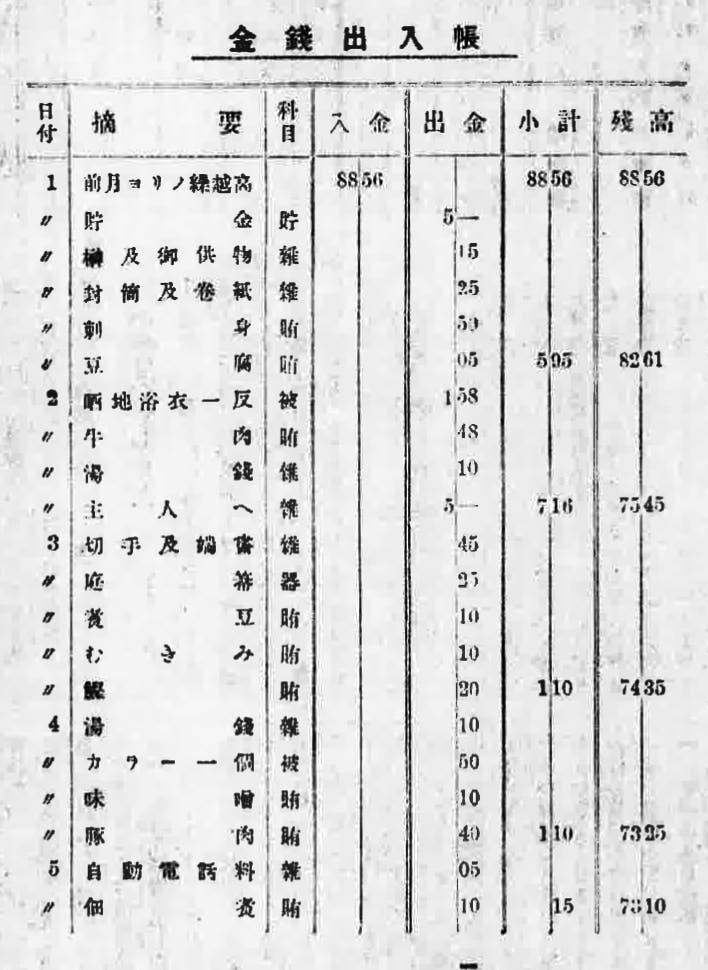 金錢出入帳
日付 摘要 科目 入金 出金 小計 残高
1 前月ヨリノ繰越高 8856 8856 8856
〃 貯金 貯 5—
〃 榊及御供物 雑 15
〃 封筒及巻紙 雑 25
〃 刺身 賄 50
〃 豆腐 賄 05 595 8261
2 晒地浴衣一反 被 158
〃 牛肉 賄 48
〃 湯錢 雑 10
〃 主人へ 雑 5— 716 7545
3 切手及端書 雑 45
〃 庭箒 器 25
〃 煮豆 賄 10
〃 むきみ 賄 10
〃 賄 20 110 7435
4 湯錢 雑 10
〃 カラー一個 被 50
〃 味噌 賄 10
〃 豚肉 賄 40 110 7325
5 自動電話料 雑 05
〃 佃煮 賄 10 15 7310